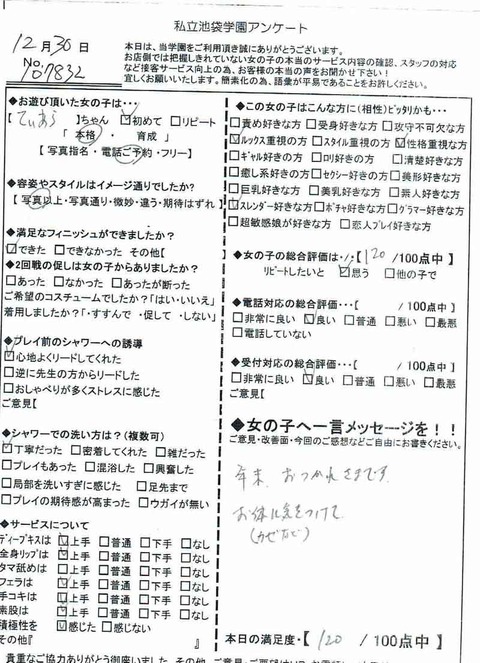 私立池袋学園アンケート
12月30日
No. 107832
本日は、当学園をご利用頂き誠にありがとうございます。
お店側では把握しきれていない女の子の本当のサービス内容の確認、スタッフの対応
など接客サービス向上の為、お客様の本当の声をお聞かせ下さい！
宜しくお願いいたします。簡素化の為、語彙が平易であることをお許しください。
◆お遊び頂いた女の子は・・・
【てぃあら】ちゃん ☑初めて □リピート
「 本格 ・ 育成 」
【 写真指名・電話ご予約・フリー】
◆容姿やスタイルはイメージ通りでしたか？
【 写真以上・写真通り・微妙・違う・期待はずれ 】
◆満足なフィニッシュができましたか？
☑できた □できなかった その他【
◆2回戦の促しは女の子からありましたか？
□あった □なかった □あったが断った
ご希望のコスチュームでしたか？「はい・いいえ」
着用しましたか？「・すすんで ・促して ・しない」
◆プレイ前のシャワーへの誘導
☑心地よくリードしてくれた
□逆に先生の方からリードした
□おしゃべりが多くストレスに感じた
ご意見【
◆シャワーでの洗い方は？（複数可）
☑丁寧だった □密着してくれた □雑だった
□プレイもあった □混浴した □興奮した
□局部を洗いすぎに感じた □足先まで
□プレイの期待感が高まった □ウガイが無い
◆サービスについて
ディープキスは ☑上手 □普通 □下手 □なし
全身リップは ☑上手 □普通 □下手 □なし
タマ舐めは □上手 □普通 □下手 □なし
フェラは ☑上手 □普通 □下手 □なし
手コキは ☑上手 □普通 □下手 □なし
素股は ☑上手 □普通 □下手 □なし
積極性を ☑感じた □感じない
その他『 』
貴重なご協力ありがとう御座いました。その他、ご意見・ご要望は
◆この女の子はこんな方に（相性）ピッタリかも・・・
□責め好きな方 □受身好きな方 □攻守不可欠な方
☑ルックス重視の方 □スタイル重視の方 ☑性格重視な方
□ギャル好きの方 □ロリ好きの方 □清楚好きな方
□癒し系好きの方 □セクシー好きの方 □美形好きな方
□巨乳好きな方 □美乳好きな方 □素人好きな方
☑スレンダー好きな方 □ポチャ好きな方 □グラマー好きな方
□超敏感娘が好きな方 □恋人プレイ好きな方
◆女の子の総合評価は・・・【 120 /100点中 】
リピートしたいと ☑思う □他の子で
◆電話対応の総合評価・・・【 /100点中】
□非常に良い ☑良い □普通 □悪い □最悪
□電話していない
◆受付対応の総合評価・・・【 /100点中】
□非常に良い ☑良い □普通 □悪い □最悪
ご意見【
◆女の子へ一言メッセージを！！
ご意見・改善面・今回のご感想などご自由にお書きください。
年末、おつかれさまです。
お体に気をつけて
(カゼなど)
本日の満足度・【 120 /100点中】